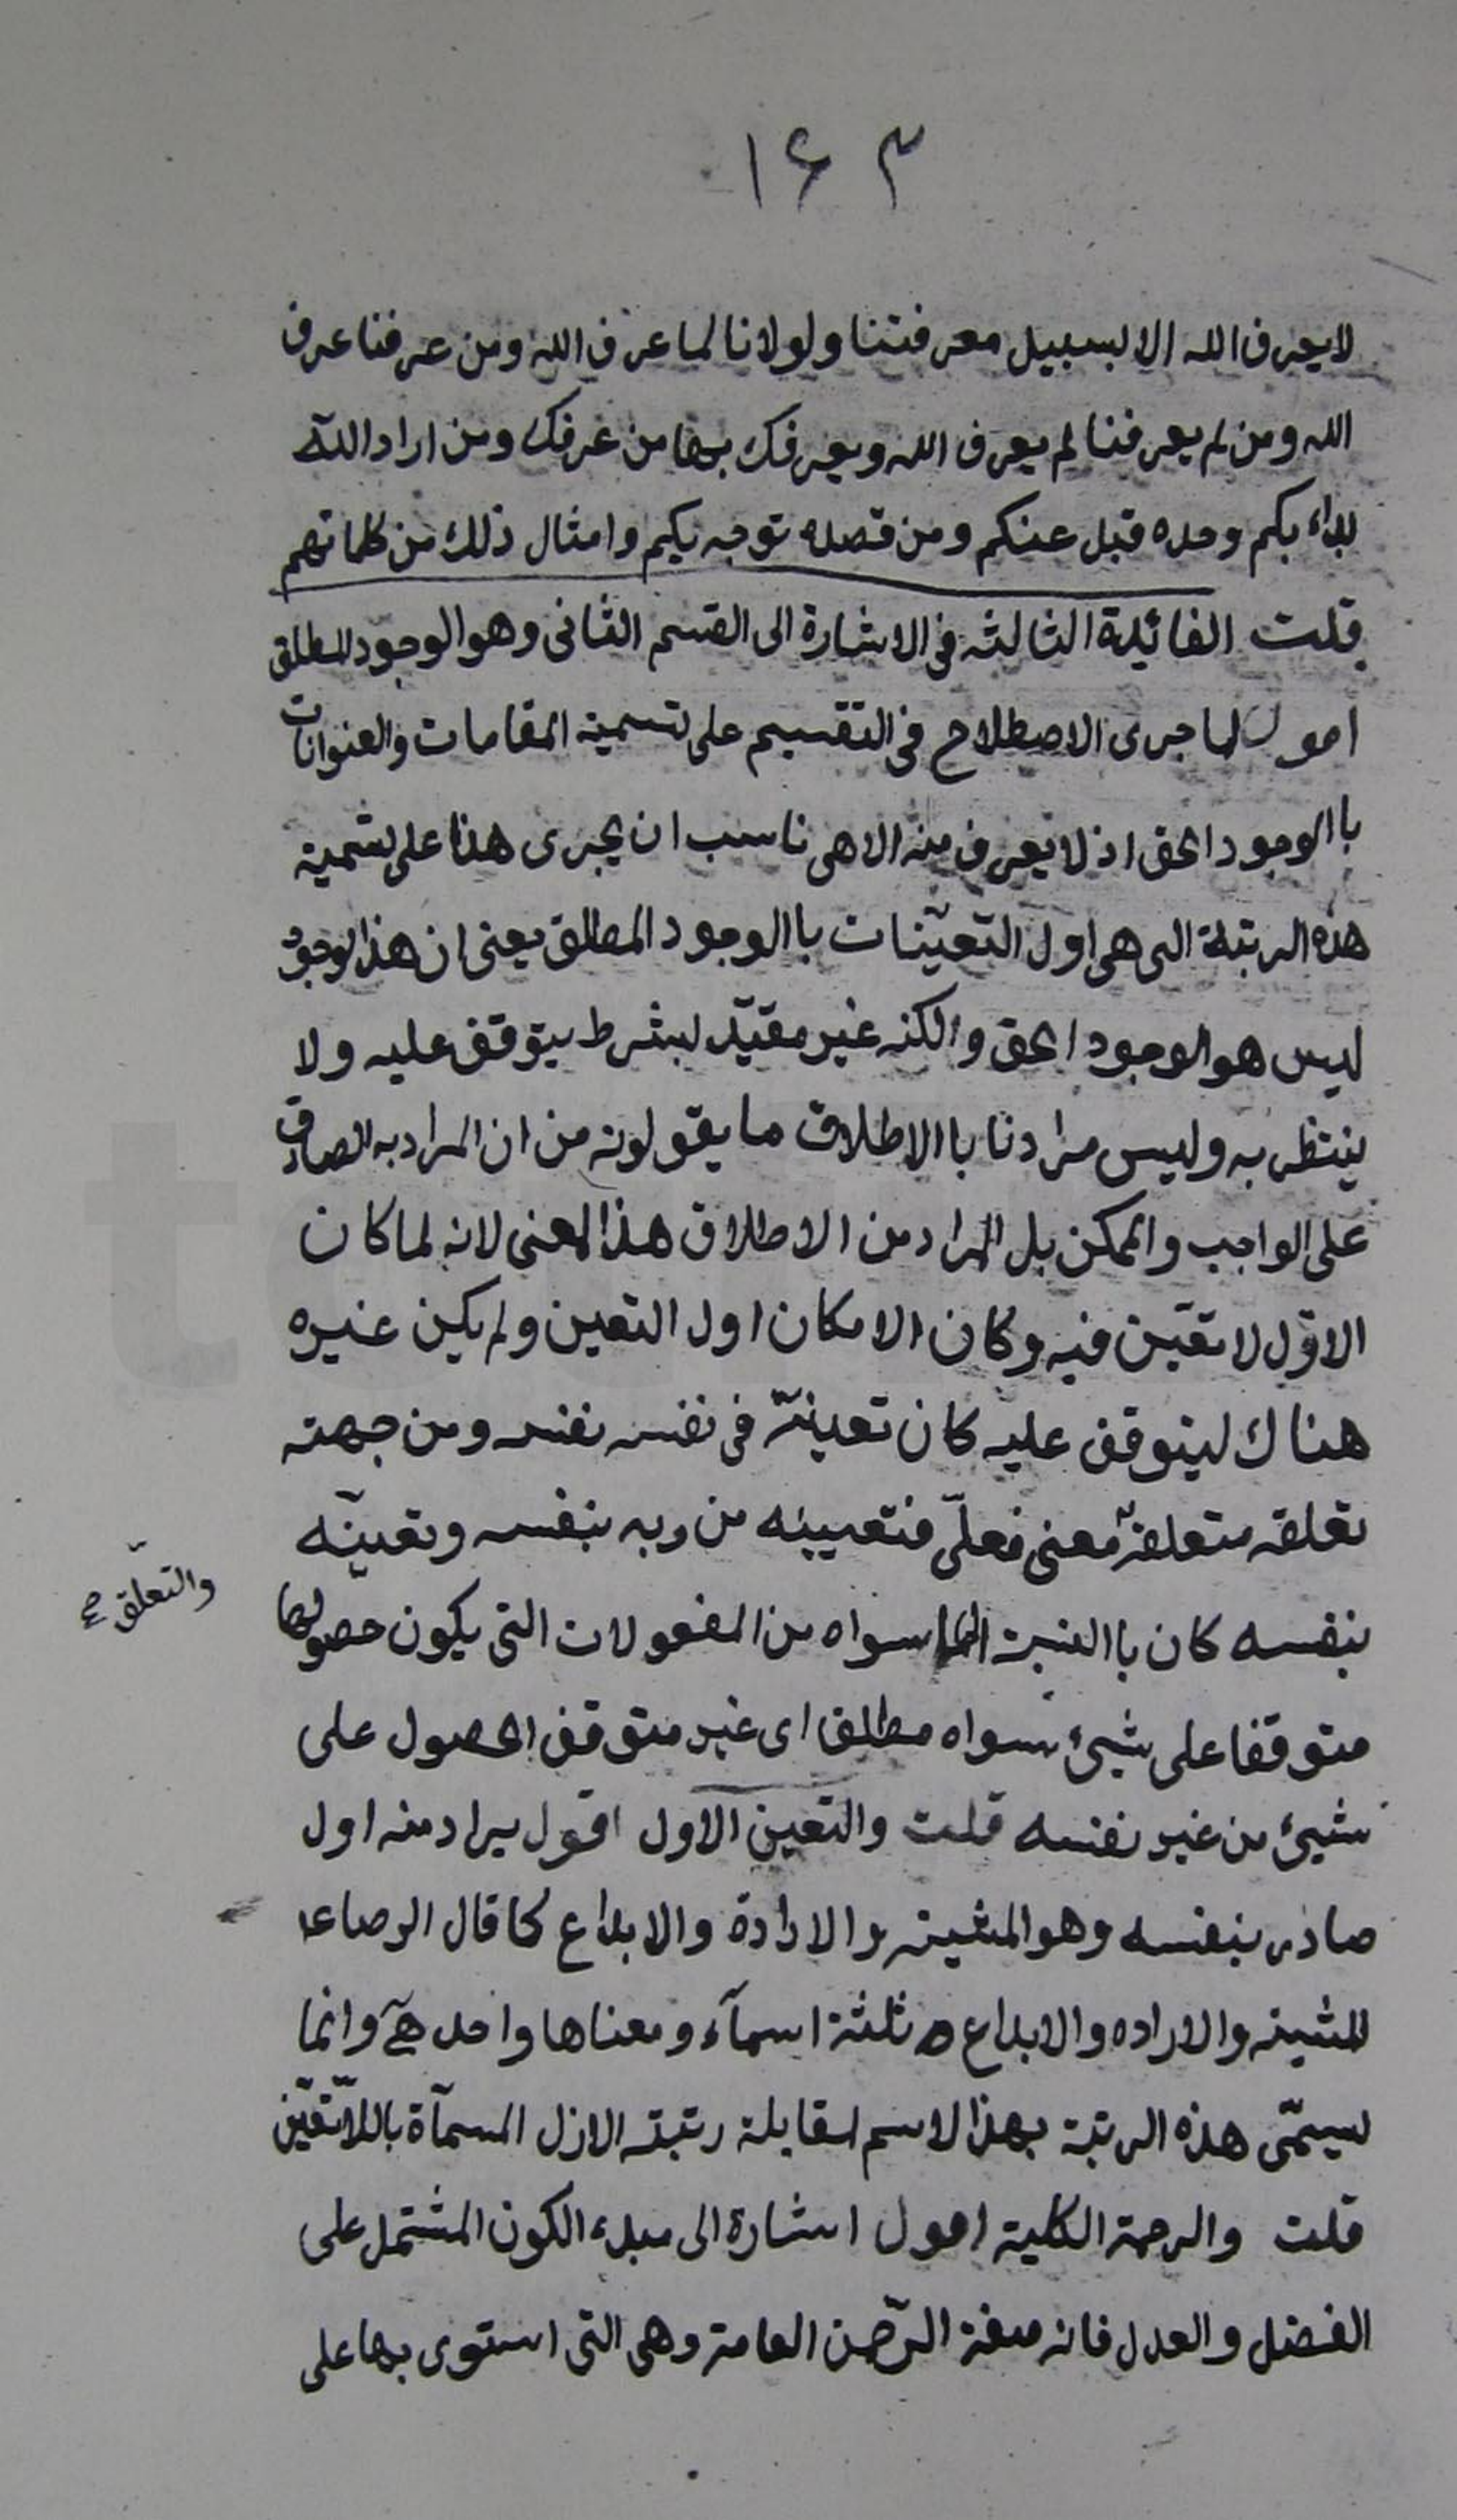 ۱۶۳
لا يعرف الله الا بسبيل معرفتنا ولولانا لما عرف الله ومن عرفنا عرف
الله ومن لم يعرفنا لم يعرف الله ويعرفك بها من عرفك ومن اراد الله
بداء بكم وحده قبل عنكم ومن قصده توجه بكم وامثال ذلك من كلماتهم
قلت الفائدة الثالثه فى الاشارة الى القسم الثانى وهو الوجود المطلق
اقول لما جرى الاصطلاح فى التقسيم على تسمية المقامات والعنوانات
با الوجود الحق اذ لا يعرف منه الا هى ناسب ان يجرى هذا على تسمية
هذه الرتبة التى هى اول التعيّنات با الوجود المطلق يعنى ان هذا الوجود
ليس هو الوجود الحق والكنه غير مقيّد بشرط يتوقف عليه ولا
ينتظر به وليس مرادنا با الاطلاق ما يقولونه من ان المراد به الصادق
على الواجب والممكن بل المراد من الاطلاق هذا المعنى لانه لما كان
الاوّل لا تعيّن فيه وكان الامكان اول التعين ولم يكن غيره
هناك ليتوقف عليه كان تعينّه فى نفسه بنفسه ومن جهته
تعلقه متعلقه معنى فعلىّ فتعيينه من ربه بنفسه وتعينّه
والتعلّق صح
بنفسه كان با النسبة الى ما سواه من المفعولات التى يكون حصولها
متوقفا على شيئ سواه مطلقا اى غير متوقف الحصول على
شيئ من غير نفسه قلت والتعين الاول اقول يراد منه اول
صادر بنفسه وهو المشية والارادة والابداع كما قال الرضا ع
المشية والاراده والابداع ثلثة اسمآء ومعناها واحد هـ وانما
يسمّى هذه الرتبة بهذا الاسم لمقابلة رتبة الازل المسمآة باللاّتعيّن
قلت والرحمة الكلية اقول اشارة الى مبدء الكون المشتمل على
الفضل والعدل فانه صفة الرّحمن العامة وهى التى استوى بها على